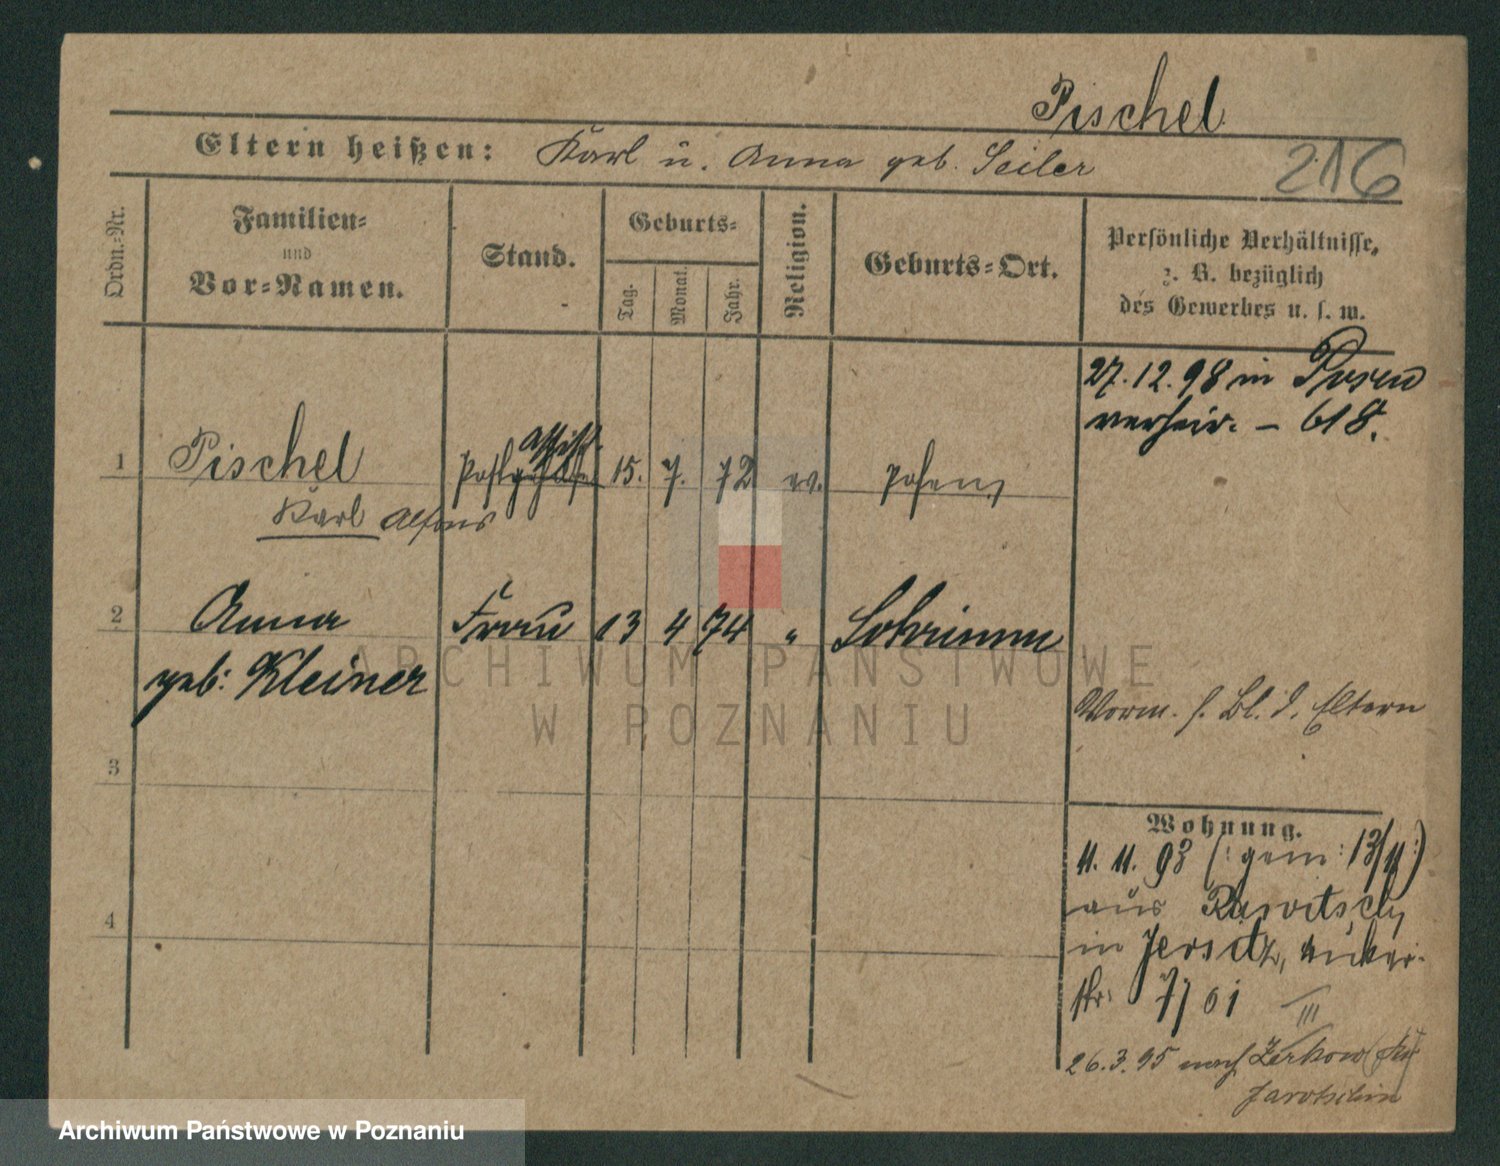 Pischel
Eltern heißen: Karl u. Anna geb. Seiler
216
Ordn.=Nr.
Familien=
und
Vor=Namen.
Stand.
Geburts=
Tag.
Monat.
Jahr.
Religion.
Geburts=Ort.
Persönliche Verhältnisse,
z. B. bezüglich
des Gewerbes u. s. w.
27.12.98 in Posen
verheir. – 618.
assist.
1 Pischel Postgehülfe 15. 7. 72 ev. Posen
Karl Alfons
2 Anna Frau 13 4 74 " Schrimm
geb: Kleiner
Vorm. s. Bl. d. Eltern
3
Wohnung.
11. 11. 93 (: gem: 13/11:)
aus Rawitsch
in Jersitz,
str: 7) 61
III
4
26.3.95 nach Zerkow
Jarotschin
ARCHIWUM PAŃSTWOWE
W POZNANIU
Archiwum Państwowe w Poznaniu